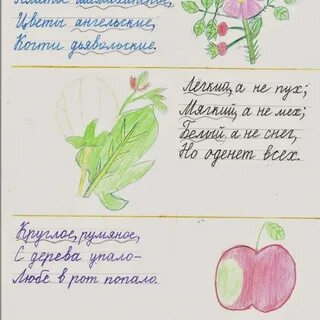 Цветы ангельские,
Когти дьявольские.
Лёгкий, а не пух;
Мягкий, а не мех;
Белый а не снег,
Но оденет всех.
Круглое, румяное,
С дерева упало-
Любе в рот попало.